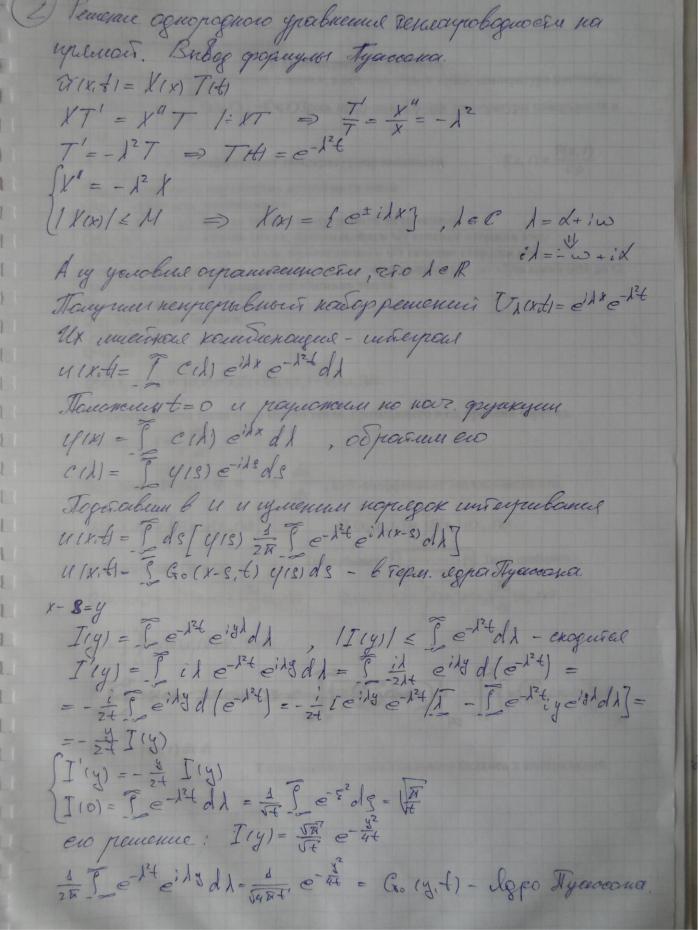 2. Решение однородного уравнения теплопроводности на
прямой. Вывод формулы Пуассона.
u(x,t) = X(x) T(t)
XT' = X'' T |: XT ⇒ T'/T = X''/X = -λ²
T' = -λ² T ⇒ T(t) = e^{-λ²t}
{ X'' = -λ² X
|X(x)| ≤ M ⇒ X(x) = { e^{±iλx} }, λ∈C λ = α + iω
⇓
iλ = -ω + iα
А из условия ограниченности, что λ∈ℝ
Получим непрерывный набор решений U_λ(x,t) = e^{iλx} e^{-λ²t}
Их линейная комбинация - интеграл
u(x,t) = ∫_{-∞}^{∞} C(λ) e^{iλx} e^{-λ²t} dλ
Положим t=0 и разложим по нач. функции
φ(x) = ∫_{-∞}^{∞} C(λ) e^{iλx} dλ , обратим его
C(λ) = ∫_{-∞}^{∞} φ(s) e^{-iλs} ds
Подставим в u и изменим порядок интегрирования
u(x,t) = ∫_{-∞}^{∞} ds [ φ(s) 1/2π ∫_{-∞}^{∞} e^{-λ²t} e^{iλ(x-s)} dλ ]
u(x,t) = ∫_{-∞}^{∞} G₀(x-s,t) φ(s) ds - в терм. ядра Пуассона
x - s = y
I(y) = ∫_{-∞}^{∞} e^{-λ²t} e^{iyλ} dλ , |I(y)| ≤ ∫_{-∞}^{∞} e^{-λ²t} dλ - сходится
I'(y) = ∫_{-∞}^{∞} iλ e^{-λ²t} e^{iλy} dλ = ∫_{-∞}^{∞} iλ/(-2λt) e^{iλy} d(e^{-λ²t}) =
= -i/2t ∫_{-∞}^{∞} e^{iλy} d(e^{-λ²t}) = -i/2t [ e^{iλy} e^{-λ²t} |_{-∞}^{∞} - ∫_{-∞}^{∞} e^{-λ²t} iy e^{iyλ} dλ ] =
= -y/2t I(y)
{ I'(y) = -y/2t I(y)
I(0) = ∫_{-∞}^{∞} e^{-λ²t} dλ = 1/√t ∫_{-∞}^{∞} e^{-ξ²} dξ = √π/√t
его решение: I(y) = √π/√t e^{-y²/4t}
1/2π ∫_{-∞}^{∞} e^{-λ²t} e^{iλy} dλ = 1/√(4πt) e^{-y²/4t} = G₀(y,t) - Ядро Пуассона.